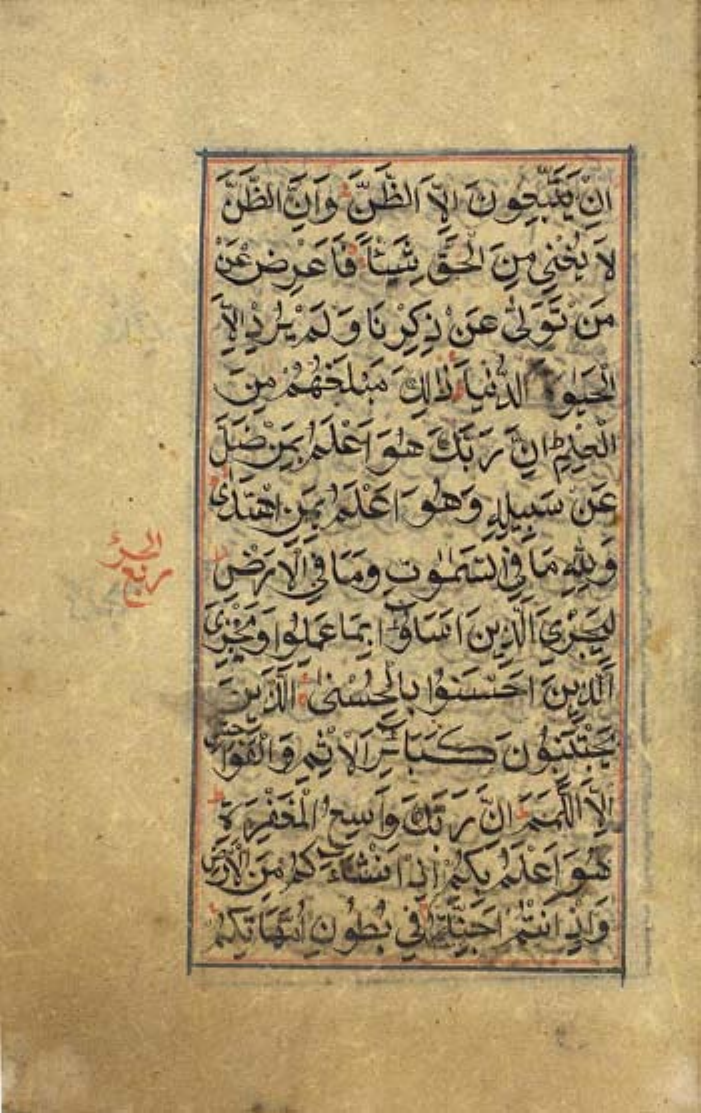 اِنْ يَتَّبِعُونَ اِلَّا الظَّنَّ وَاِنَّ الظَّنَّ
لَا يُغْنِي مِنَ الْحَقِّ شَيْئًا فَاَعْرِضْ عَنْ
مَنْ تَوَلّٰى عَنْ ذِكْرِنَا وَلَمْ يُرِدْ اِلَّا
الْحَيٰوةَ الدُّنْيَا ذٰلِكَ مَبْلَغُهُمْ مِنَ
الْعِلْمِ ط اِنَّ رَبَّكَ هُوَ اَعْلَمُ بِمَنْ ضَلَّ
عَنْ سَبِيلِهٖ وَهُوَ اَعْلَمُ بِمَنِ اهْتَدٰى
وَلِلّٰهِ مَا فِي السَّمٰوٰتِ وَمَا فِي الْاَرْضِ
لِيَجْزِيَ الَّذِينَ اَسَاۤؤُا بِمَا عَمِلُوا وَيَجْزِيَ
الَّذِينَ اَحْسَنُوا بِالْحُسْنٰى الَّذِينَ
يَجْتَنِبُونَ كَبَاۤئِرَ الْاِثْمِ وَالْفَوَاحِشَ
اِلَّا اللَّمَمَ اِنَّ رَبَّكَ وَاسِعُ الْمَغْفِرَةِ
هُوَ اَعْلَمُ بِكُمْ اِذْ اَنْشَاَكُمْ مِنَ الْاَرْضِ
وَاِذْ اَنْتُمْ اَجِنَّةٌ فِي بُطُونِ اُمَّهَاتِكُمْ
ربع